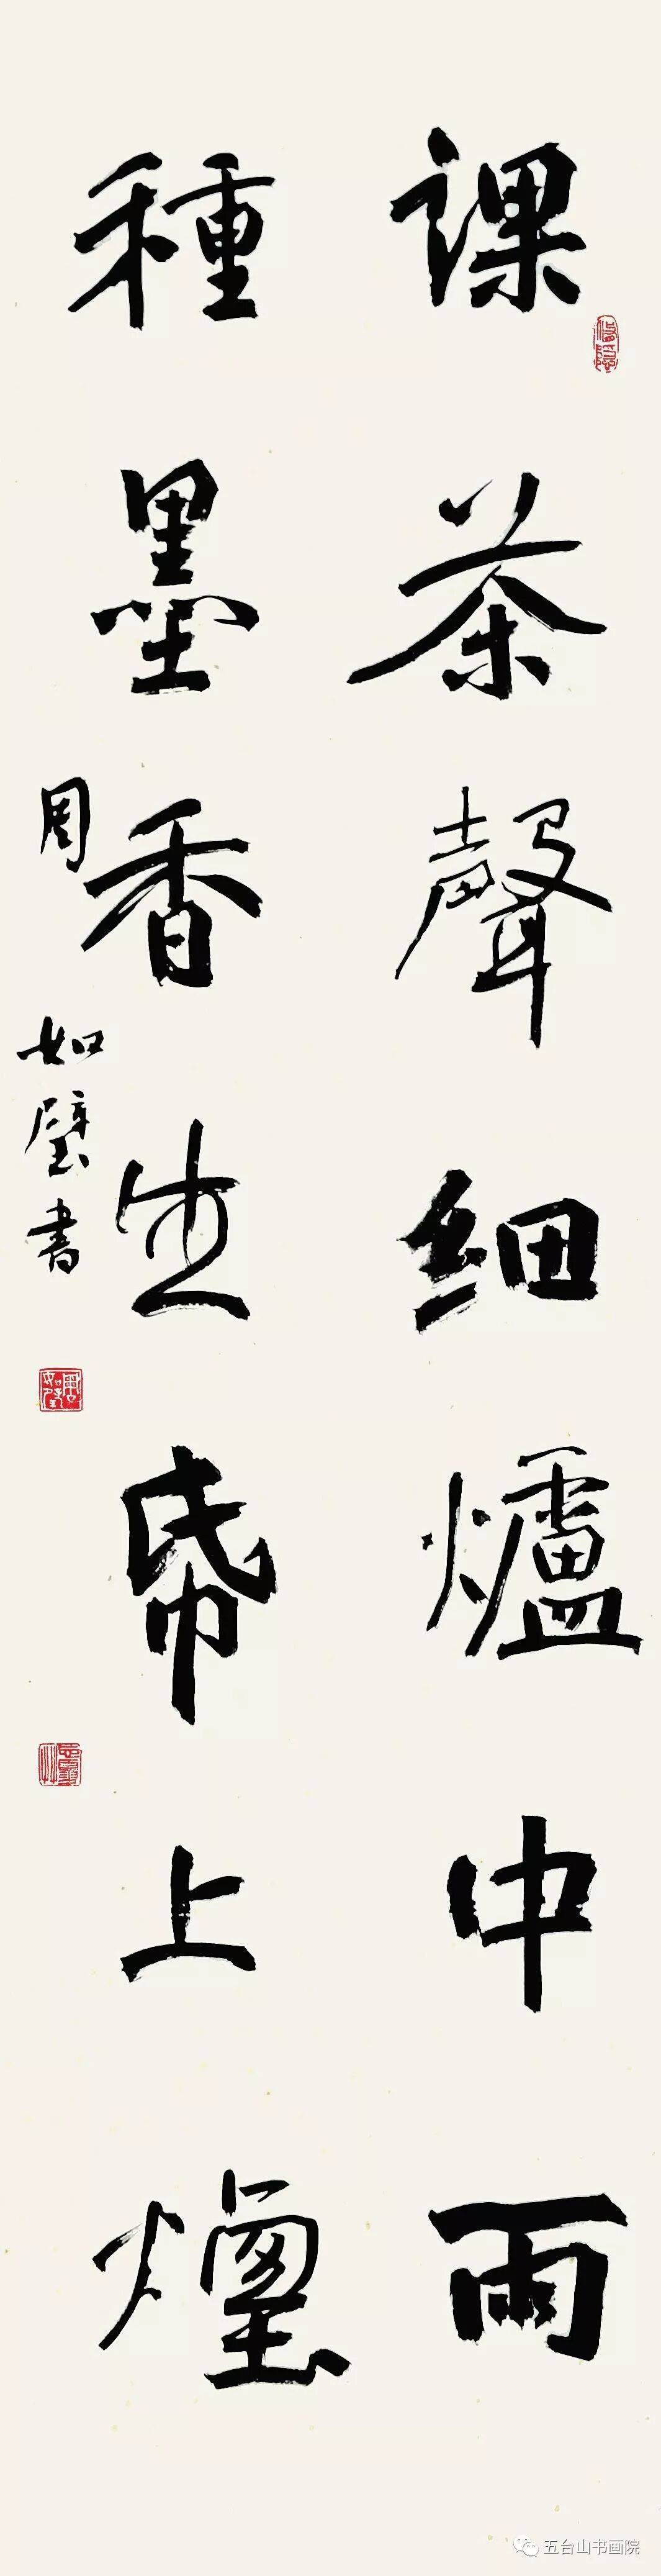 課茶聲細爐中雨
種墨香生帋上煙
周如璧書
五台山书画院